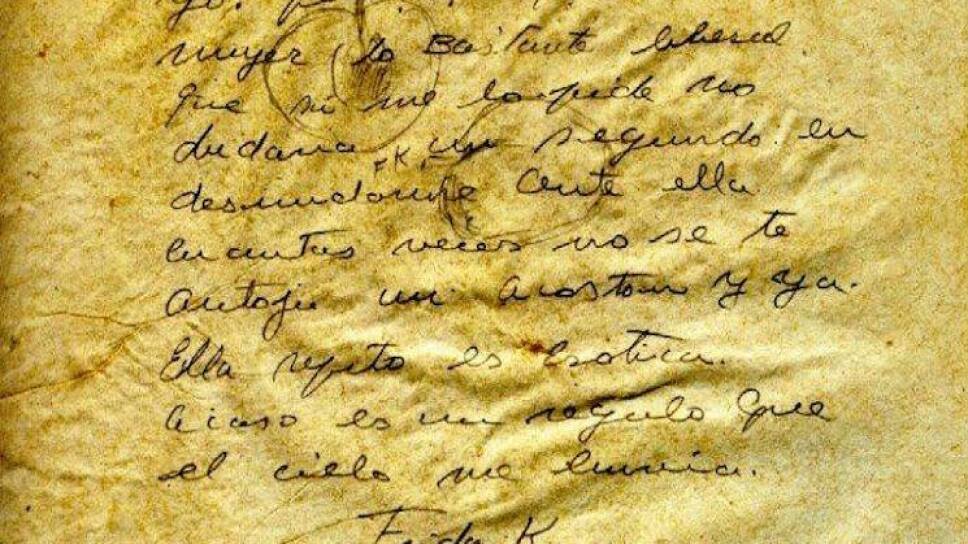 mujer lo Bastante liberal
que si me lo pide no
dudaria un segundo en
F.K.
desnudarme ante ella
cuantas veces no se te
antoja un acoston y ya.
Ella repito es Erotica.
Acaso es un regalo que
el cielo me envia.
Frida K